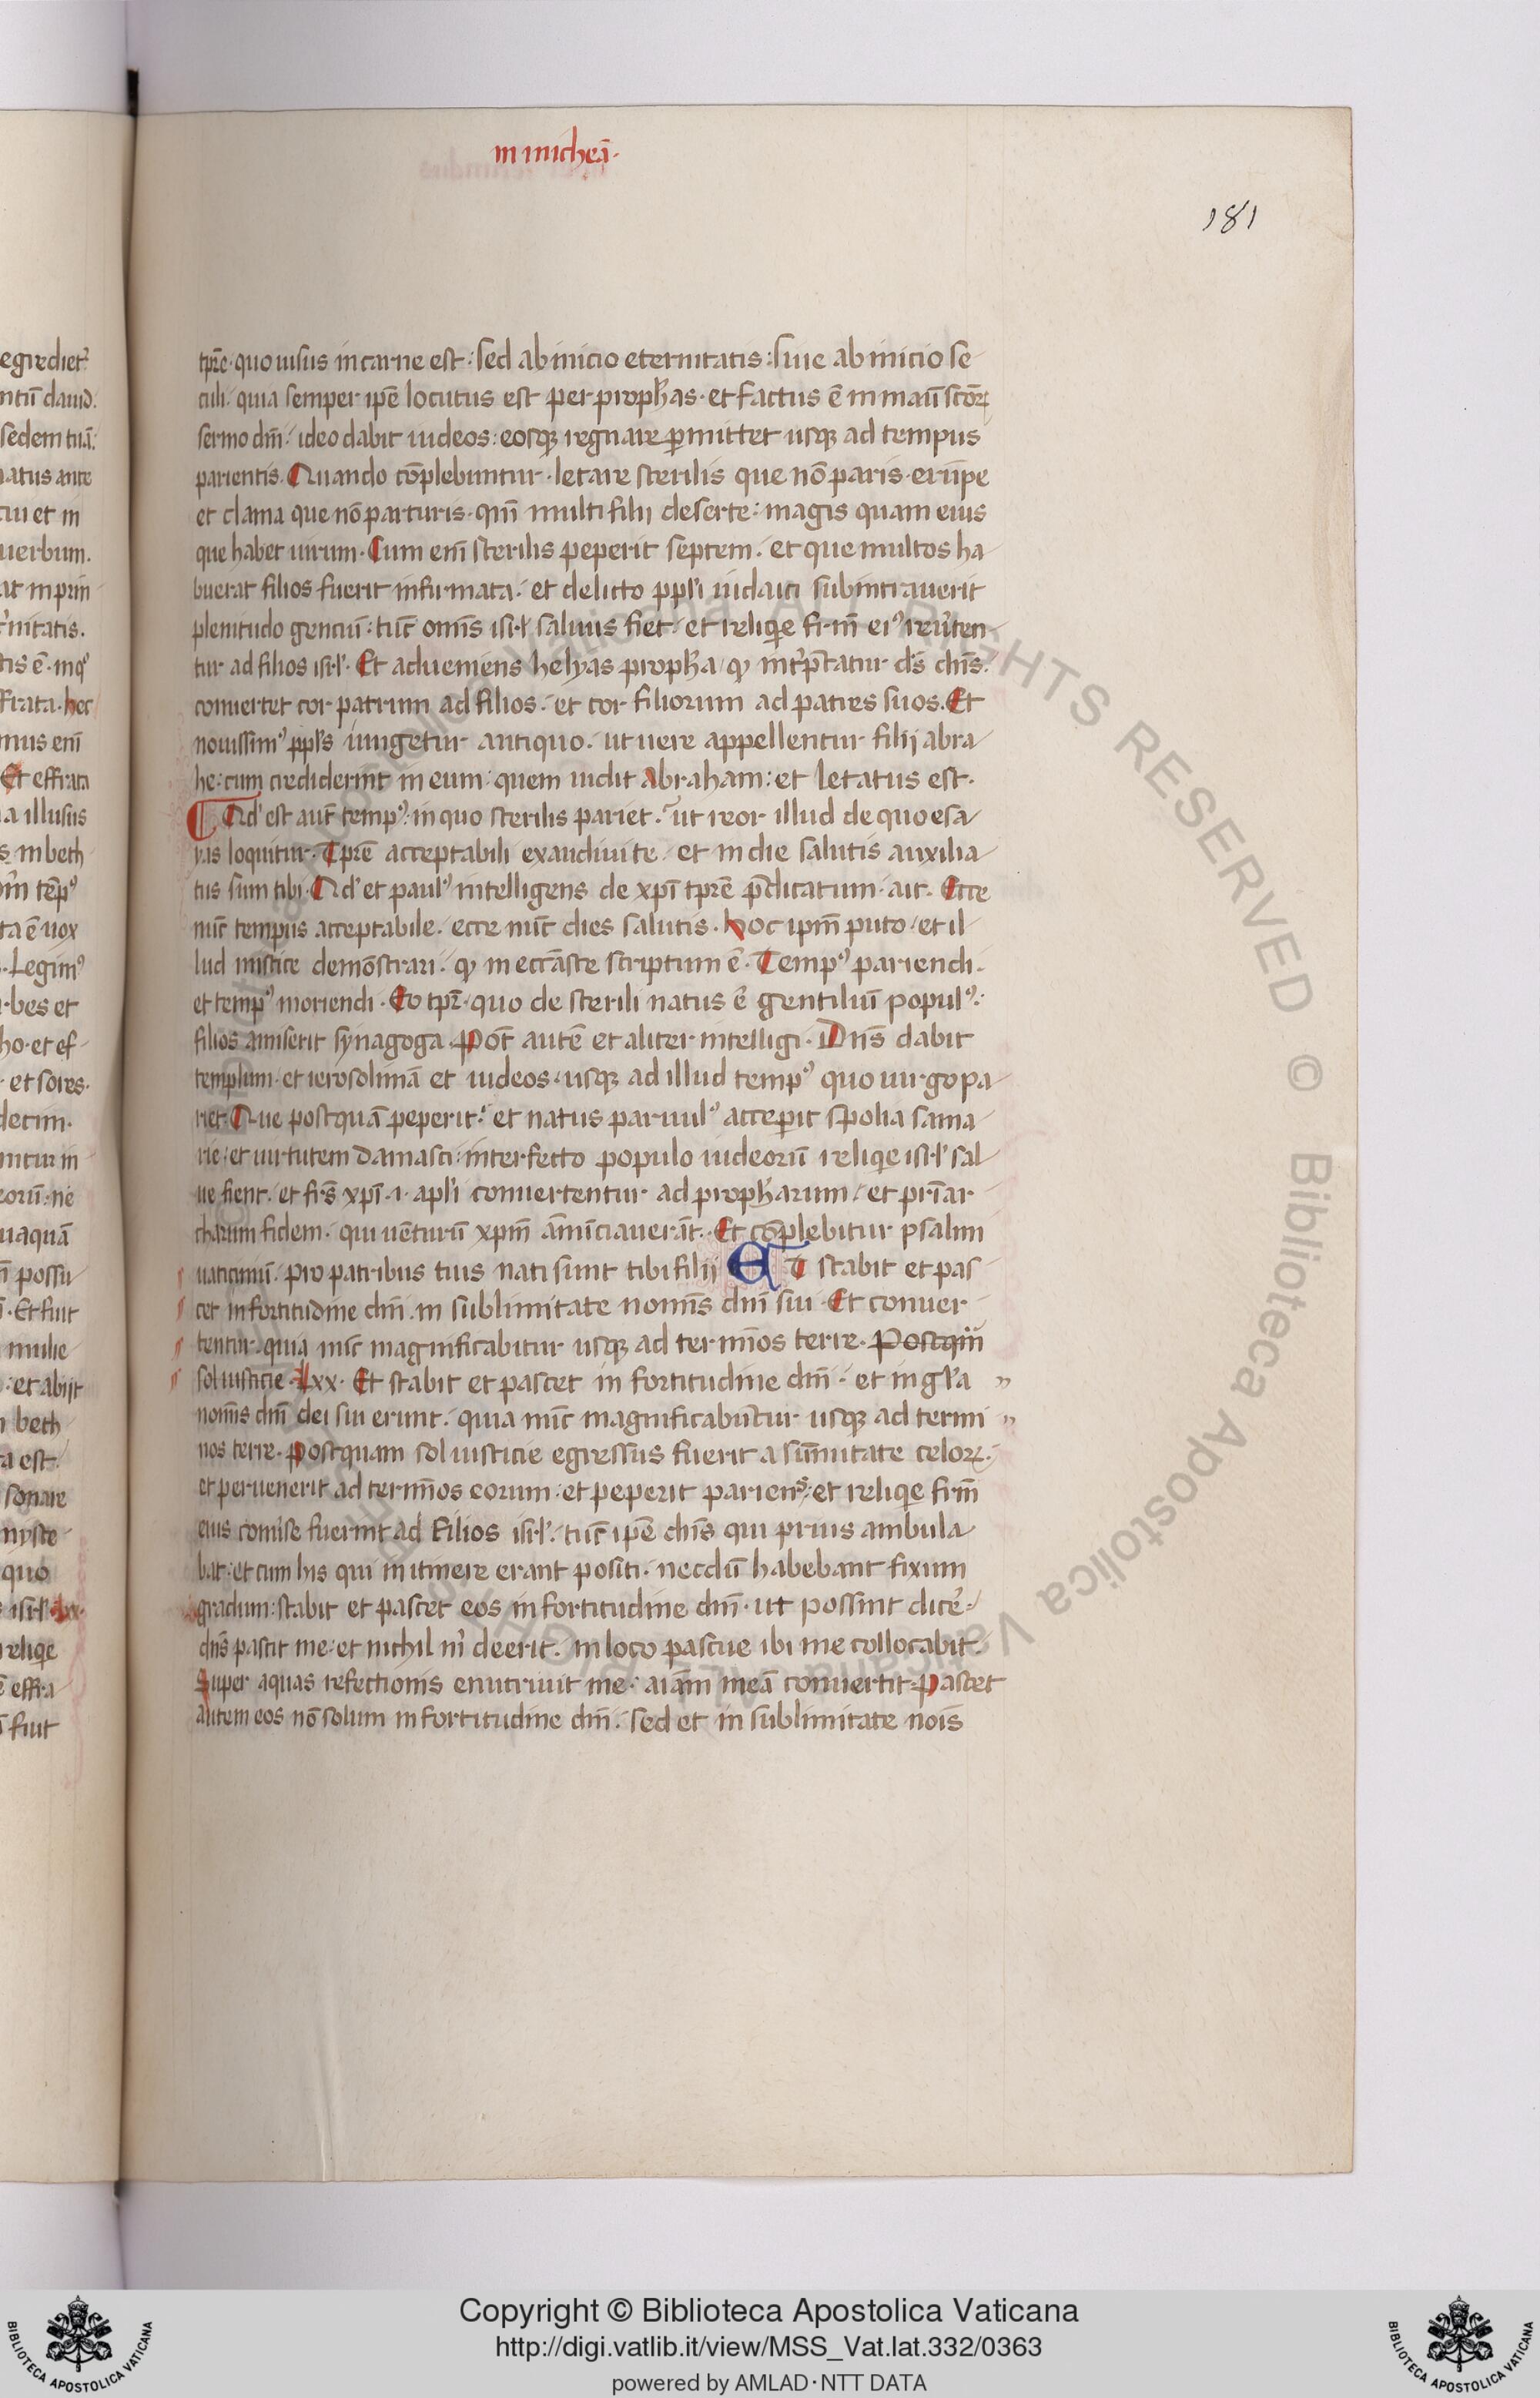 in micheā.
181
tp̄re. quo uisus in carne est: sed ab inicio eternitatis: siue ab inicio se
culi. quia semper ip̄e locutus est per proph̄as. et factus ē in manū sc̄oꝝ
sermo dn̄i: ideo dabit iudeos: eosqꝫ regnare ꝑmittet usqꝫ ad tempus
parientis. Quando cōplebuntur. letare sterilis que nō paris. erūpe
et clama que nō parturis. qm̄ multi filij deserte: magis quam eius
que habet uirum. Cum eni sterilis peperit septem. et que multos ha
buerat filios fuerit infirmata. et delicto pp̄li iudaici subintrauerit
plenitudo genciū: tūc om̄is isrl̄ saluus fiet. et reliqͥe fr̄m eiꝰ reuͥten
tur ad filios isrl̄. Et adueniens helyas proph̄a qͥ int̾p̄tatur ds̄ dn̄s.
conuertet cor patrum ad filios. et cor filiorum ad patres suos. Et
nouissimꝰ ppl̄s iungetur antiquo. ut uere appellentur filij abra
he: cum crediderint in eum: quem uidit Abraham: et letatus est.
Id est aut̄ tempꝰ: in quo sterilis pariet. ut reor illud de quo esa
yas loquitur. Tp̄re acceptabili exaudiui te. et in die salutis auxilia
tus sum tibi. Qd̾ et paulꝰ intelligens de xp̄i tp̄re p̄dicatum. ait. Ecce
nūc tempus acceptabile. ecce nūc dies salutis. hoc ip̄m puto. et il
lud mistice demōstrari. qͥ in ecc̄aste scriptum ē. Tempꝰ pariendi.
et tempꝰ moriendi. Eo tp̄r. quo de sterili natus ē gentiliū populꝰ.
filios amiserit synagoga. Pot̄ autē et aliter intelligi. Dn̄s dabit
templum. et ierosolimā et iudeos. usqꝫ ad illud tempꝰ quo uirgo pa
riet. Que postquā peperit. et natus paruulꝰ acceperit spolia sama
rie. et uirtutem damasci: interfecto populo iudeorū reliqͥe isrl̄ sal
ue fient. et frs̄ xp̄i .i. apl̄i conuertentur ad proph̄arum. et priar
charum fidem. qui uēturū xp̄m ānūciauerāt. Et cōplebitur psalmi
uaticiniū. pro patribus tuis nati sunt tibi filij Et stabit et pas
cet in fortitudine dn̄i. in sublimitate nomīs dn̄i sui. Et conuer
tentur. quia nūc magnificabitur usqꝫ ad termīos terre. Postqm̄
sol iusticie. Lxx. Et stabit et pascet in fortitudine dn̄i. et in gl̄a
nomīs dn̄i dei sui erunt. quia nūc magnificabūtur usqꝫ ad termi
nos terre. Postquam sol iusticie egressus fuerit a sūmitate celoꝝ.
et peruenerit ad termīos eorum. et peperit pariens: et reliqͥe fr̄m
eius cōuerse fuerint ad filios isrl̄. tūc ip̄e dn̄s qui prius ambula
bat. et cum his qui in itinere erant positi. necdū habebant fixum
gradum: stabit et pascet eos in fortitudine dn̄i. ut possint dicē̾.
dn̄s pascit me. et nichil m̾ deerit. in loco pascue ibi me collocabit.
Super aquas refectionis enutriuit me. aiām meā conuertit. Pascet
autem eos nō solum in fortitudine dn̄i. sed et in sublimitate nois̄
Copyright © Biblioteca Apostolica Vaticana
http://digi.vatlib.it/view/MSS_Vat.lat.332/0363
powered by AMLAD·NTT DATA